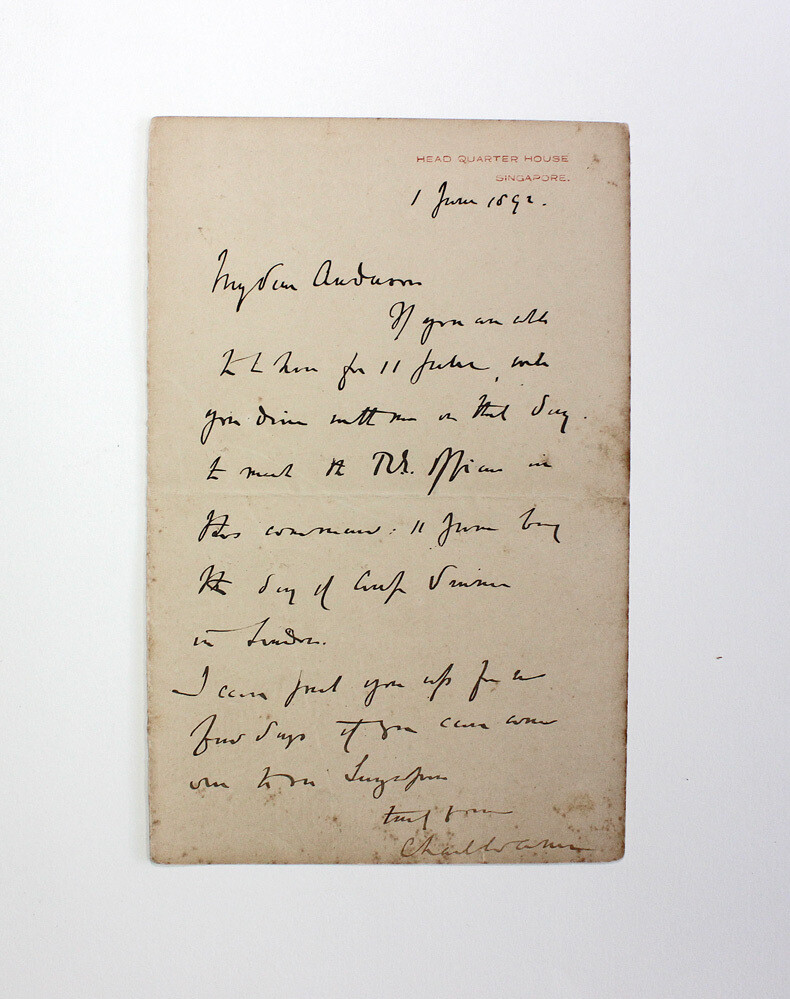 HEAD QUARTER HOUSE
SINGAPORE.
1 June 1892.
My dear Anderson
If you are able
to be here for 11 June, will
you dine with me on that day
to meet the R.E. Officers in
this command: 11 June being
the day of Corps Dinner
in London.
I can put you up for a
few days if you can come
over to see Singapore
truly yours
Charles Warren